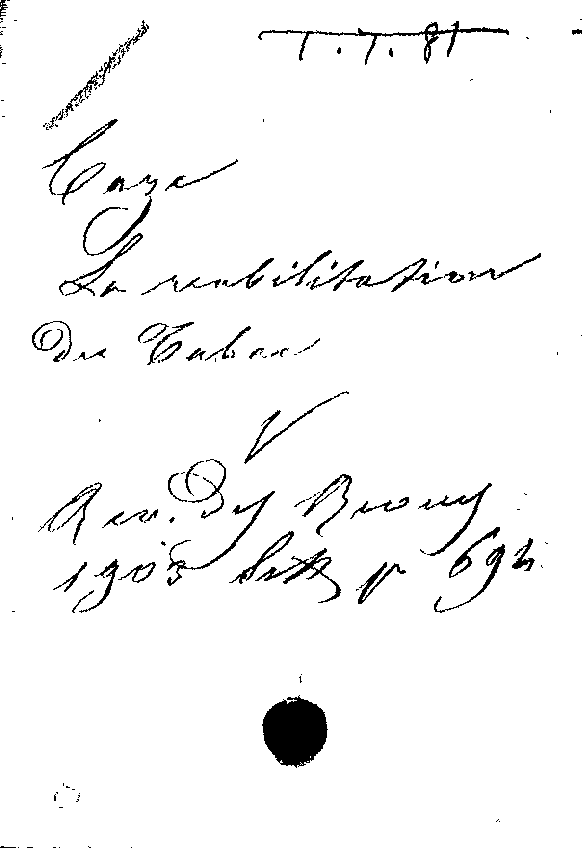 T.T. 81
Caze
La reabilitation
du Tabac
Rev. des Revues
1903 p 694